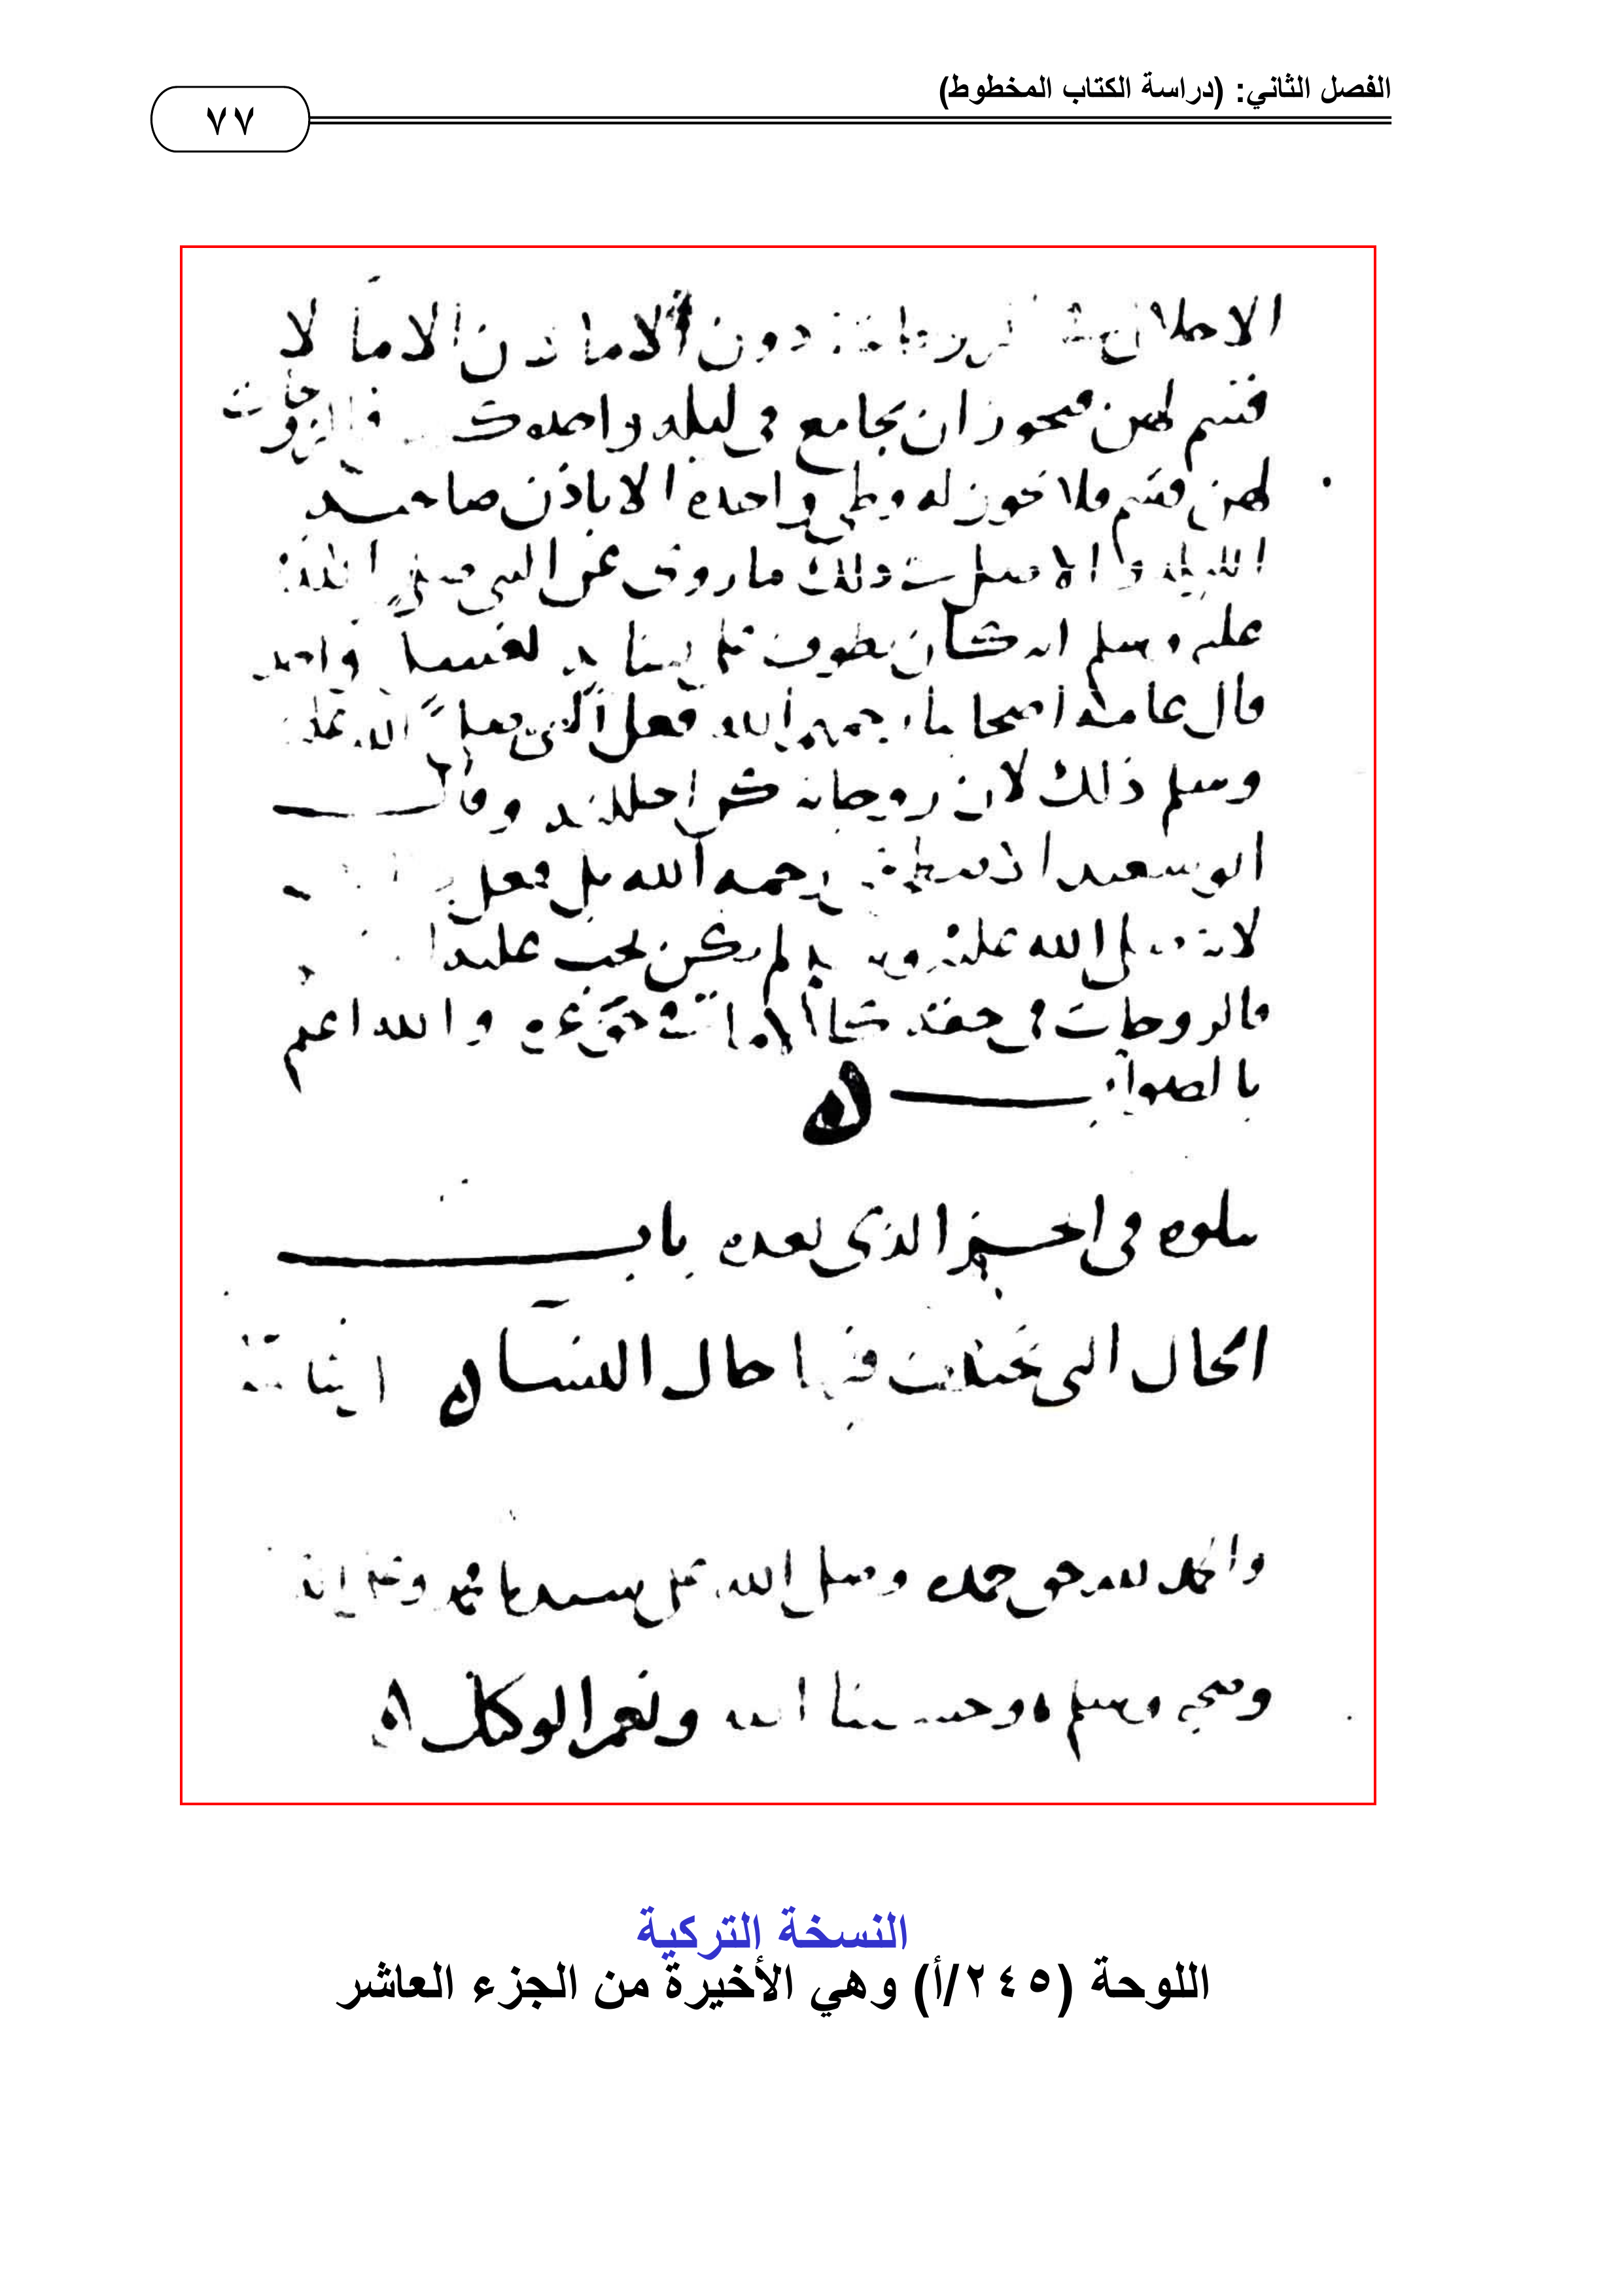 الفصل الثاني: (دراسة الكتاب المخطوط)
٧٧
دون الاما لان الاما لا
قسم لهن فيجوز ان يجامع في ليله واحده فالزوجات
لهن قسم فلا يجوز له وطي واحده الا باذن صاحبة
الليله والاصل ذلك ما روى عن النبي صلى الله
عليه وسلم انه كان يطوف على نسايه واحد
قال عامة اصحابنا رحمهم الله فعل النبي صلى الله عليه
وسلم ذلك لان زوجاته كن احللنه وقال
ابو سعيد رحمه الله بل فعل
لانه صلى الله عليه لم يكن يجب عليه
فالزوجات في حقه كالاما في حق غيره والله اعلم
بالصواب ه
يتلوه في الجز الذي بعده باب
الحال التي يختلف فيها حال النسا ه
والحمد لله حق حمده وصلى الله على سيدنا محمد وعلى اله
وصحبه وسلم ه وحسبنا الله ونعم الوكيل ه
النسخة التركية
اللوحة (٢٤٥/أ) وهي الأخيرة من الجزء العاشر